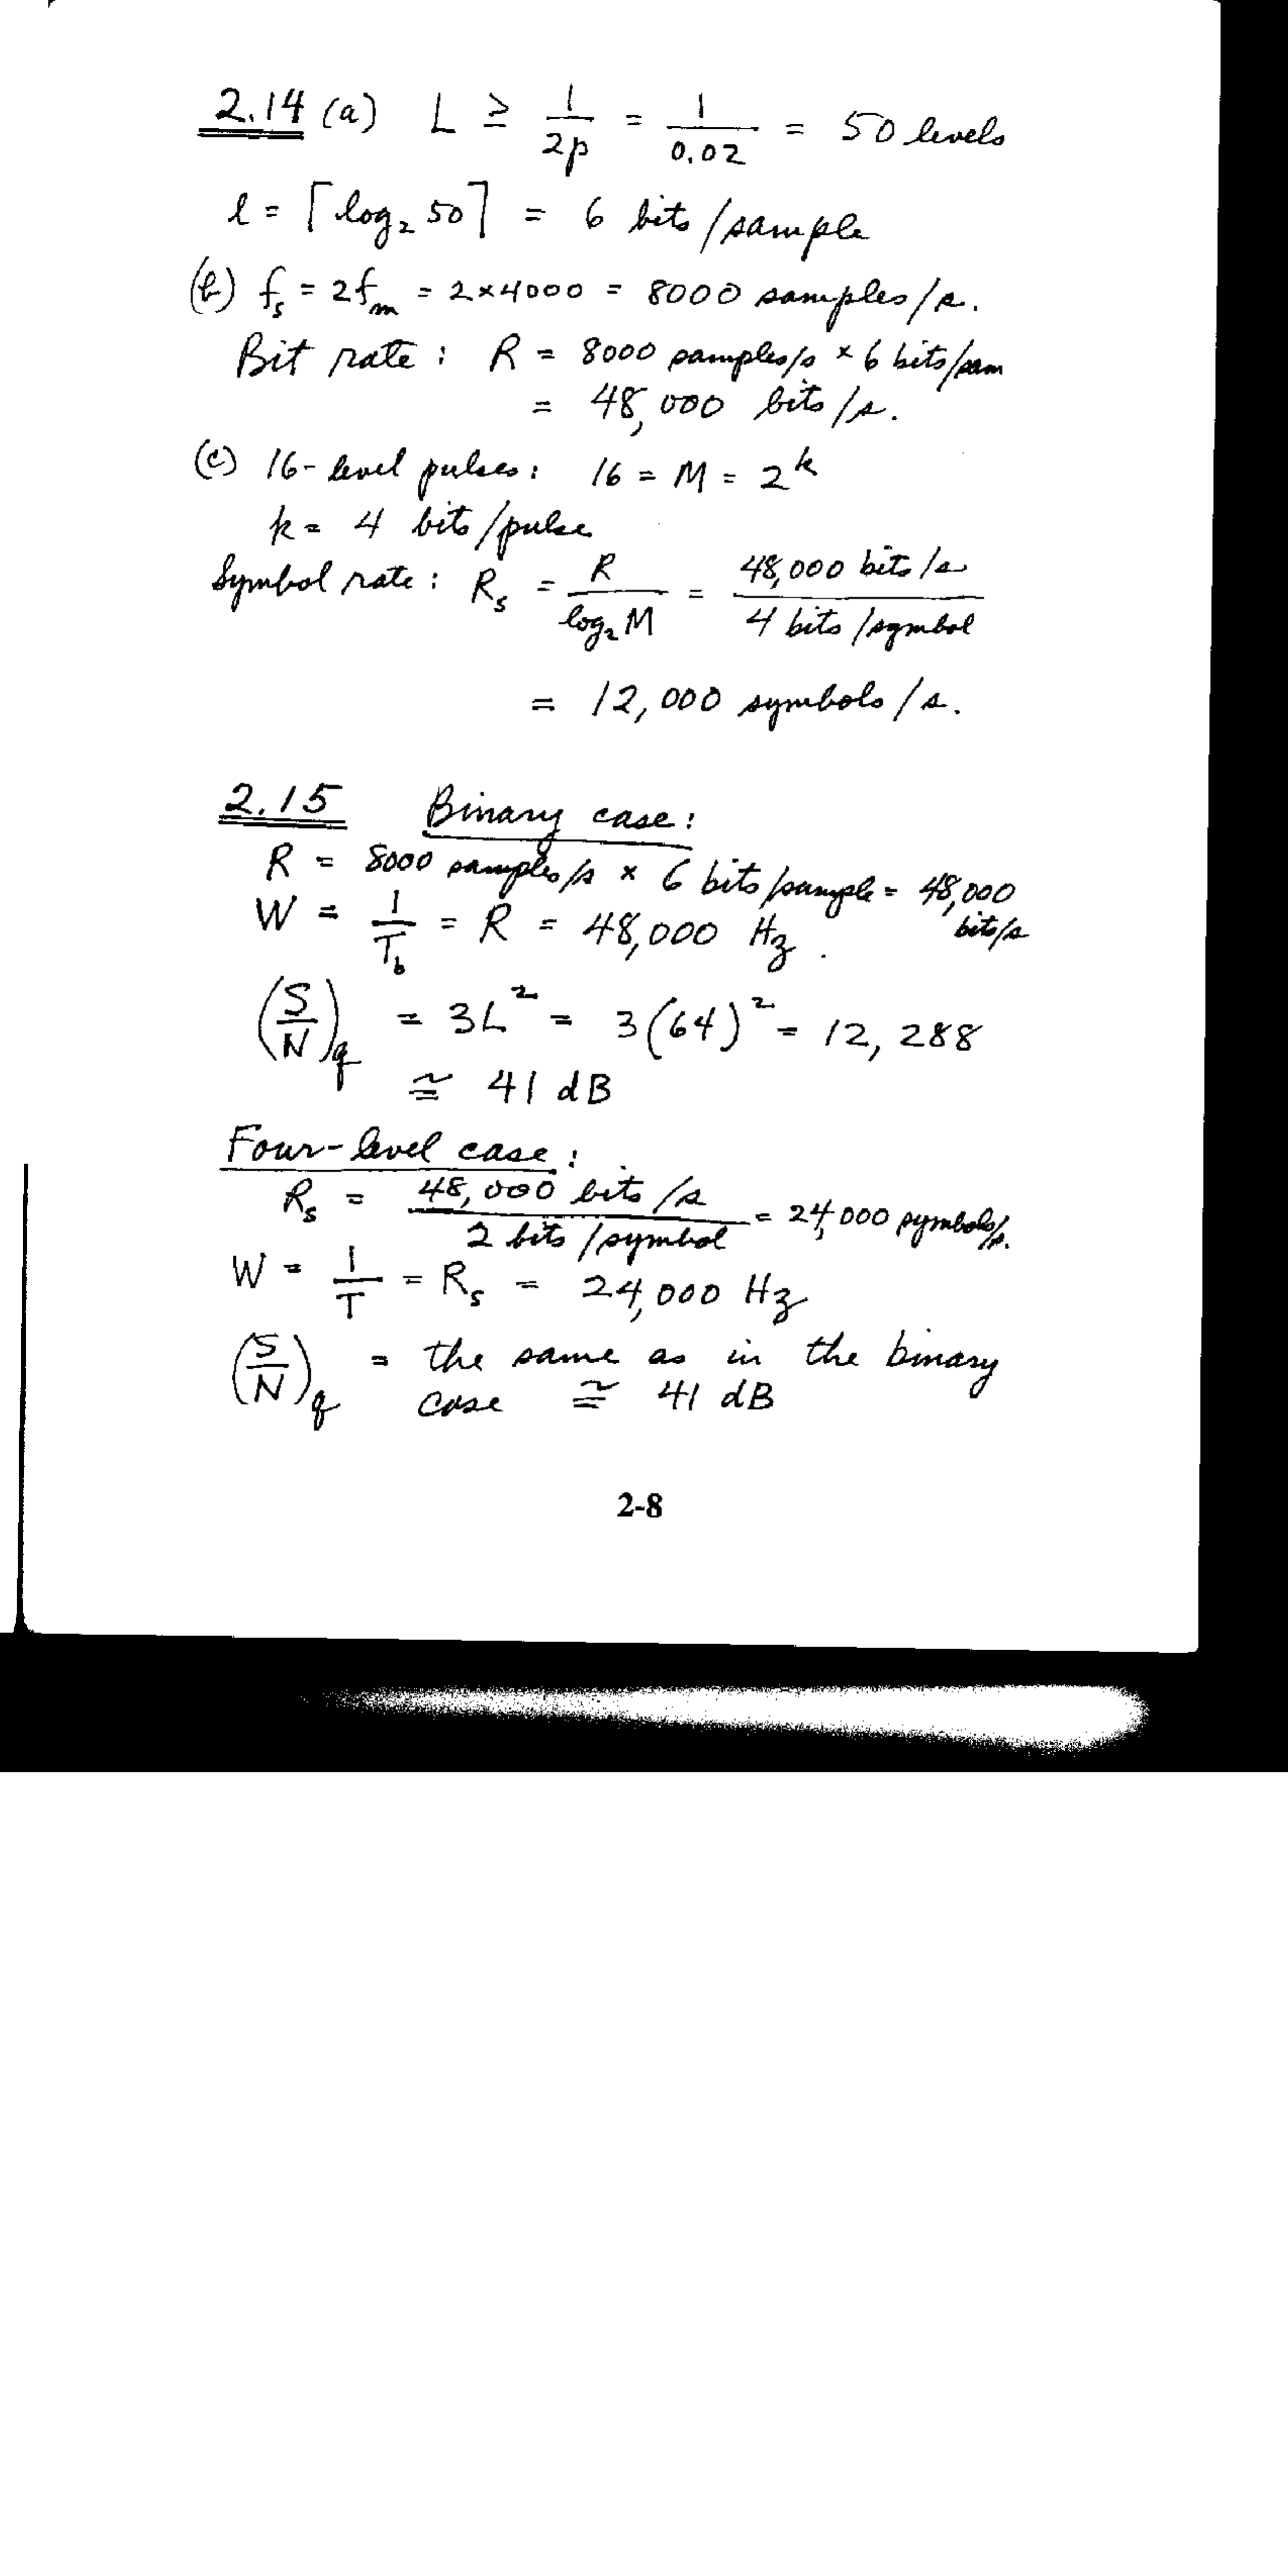 2.14 (a) L ≥ 1/2p = 1/0.02 = 50 levels
l = ⌈log₂ 50⌉ = 6 bits/sample
(b) fₛ = 2fₘ = 2×4000 = 8000 samples/s.
Bit rate : R = 8000 samples/s × 6 bits/sam
= 48,000 bits/s.
(c) 16-level pulses: 16 = M = 2^k
k = 4 bits/pulse
Symbol rate : Rₛ = R/log₂M = 48,000 bits/s / 4 bits/symbol
= 12,000 symbols/s.
2.15 Binary case:
R = 8000 samples/s × 6 bits/sample = 48,000 bits/s
W = 1/T_b = R = 48,000 Hz.
(S/N)_q = 3L² = 3(64)² = 12,288
≅ 41 dB
Four-level case:
Rₛ = 48,000 bits/s / 2 bits/symbol = 24,000 symbols/s.
W = 1/T = Rₛ = 24,000 Hz
(S/N)_q = the same as in the binary
case ≅ 41 dB
2-8